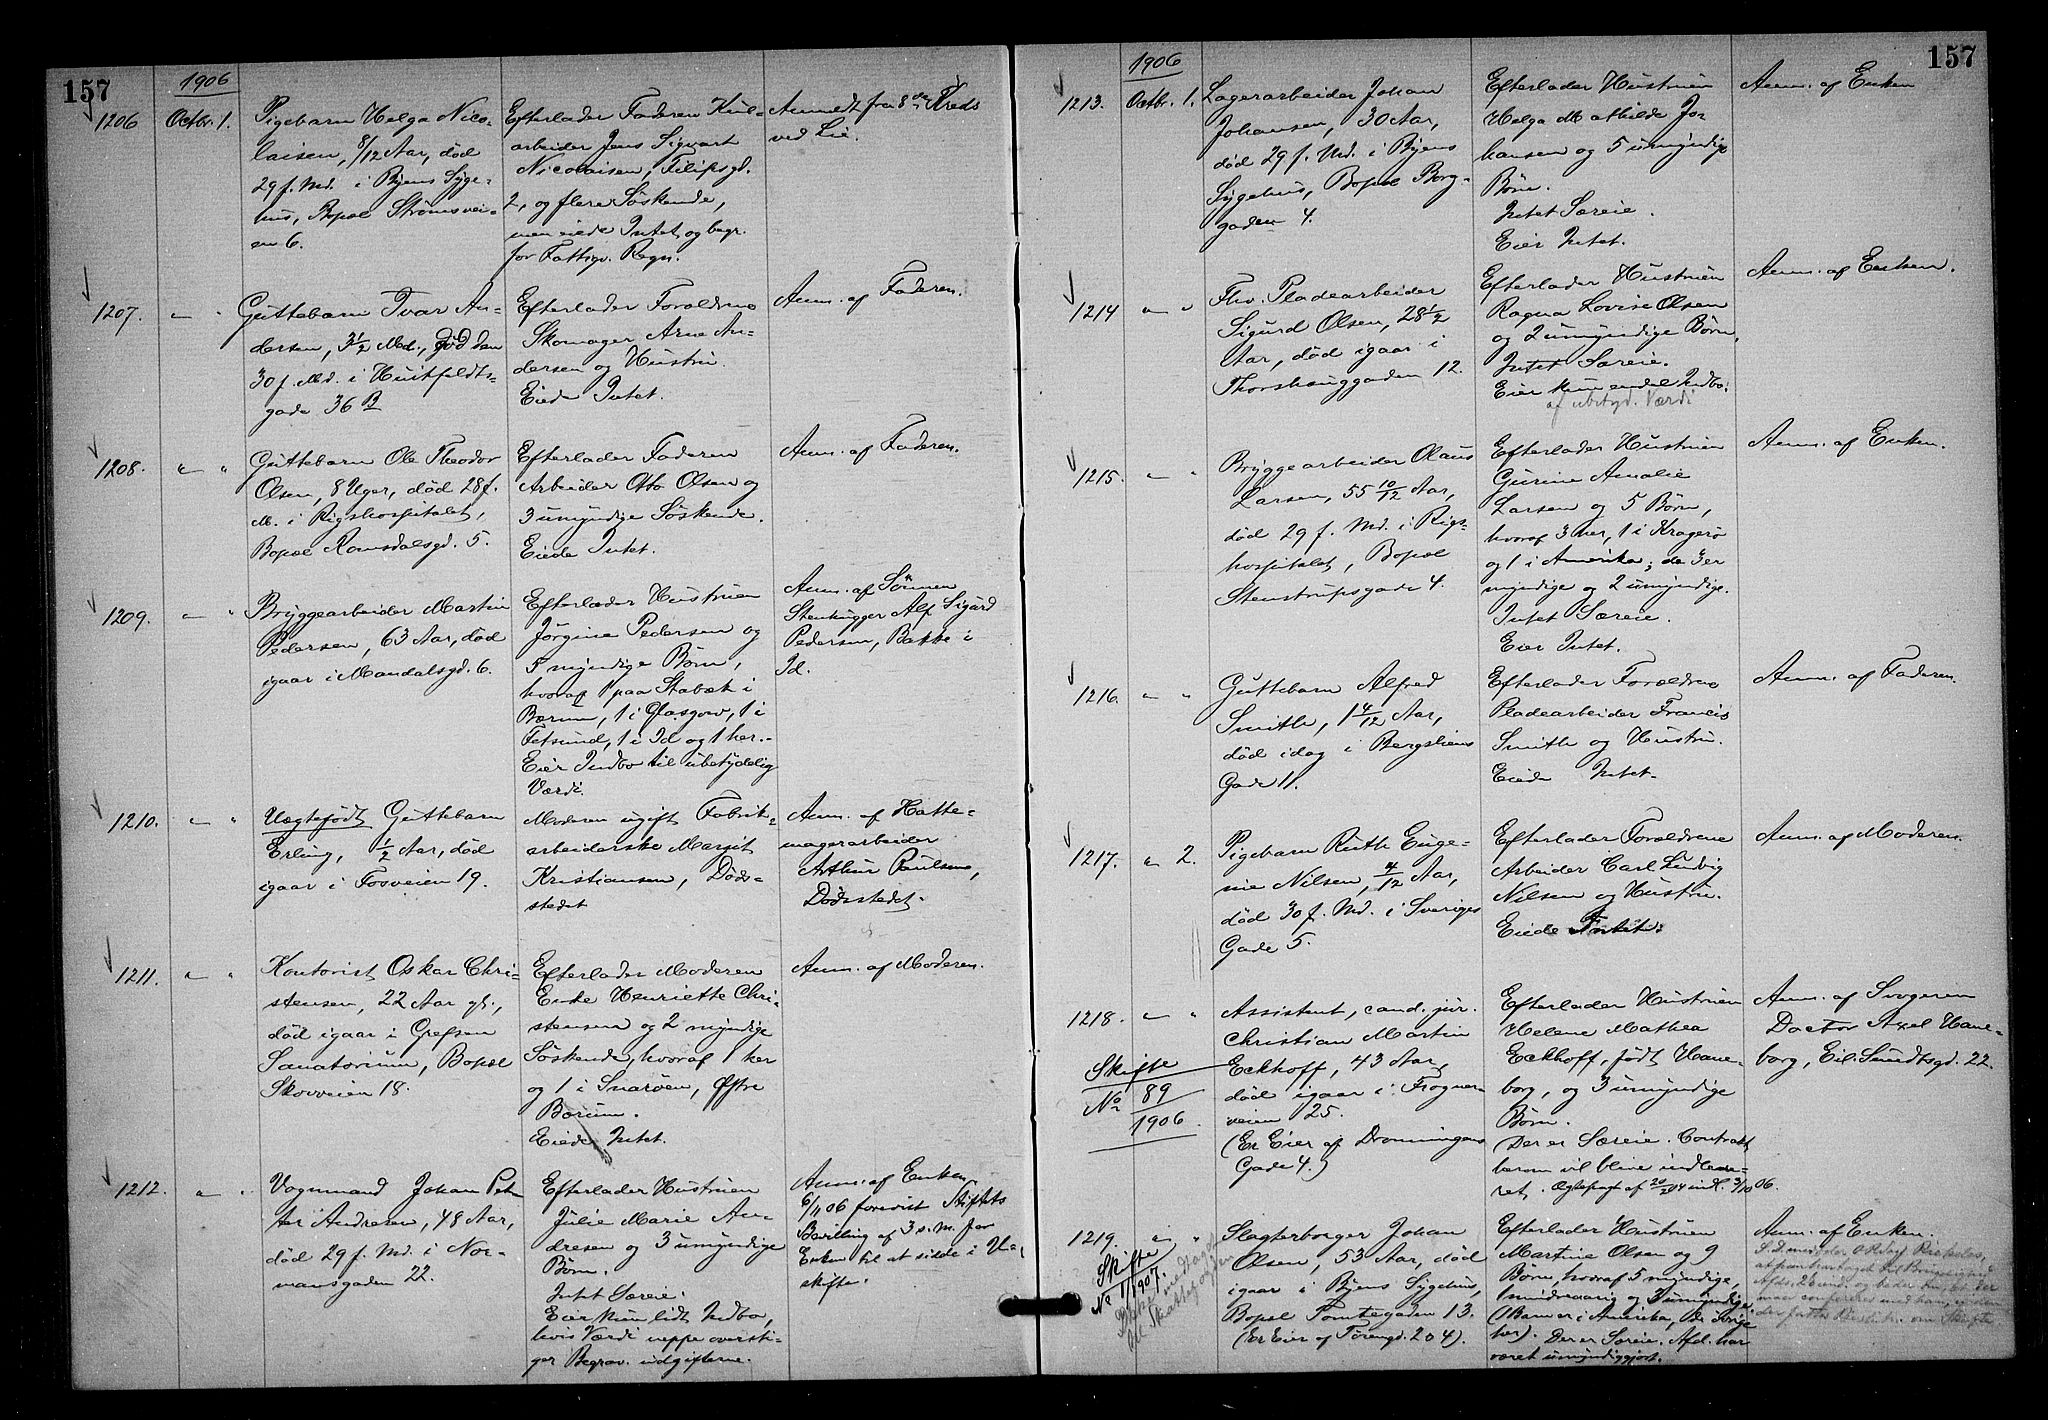 157
1906
1206 Octbr. 1. Pigebarn Helga Nico-
laisen, 8/12 Aar, død
29 f. Md. i Byens Syge-
hus, Bopæl Strømsvei-
en 6.
Efterlader Faderen Kul-
arbeider Jens Sigvart
Nicolaisen, Filipsgd.
2, og flere Søskende,
men eiede Intet og begr.
for Fattigv. Regn.
Anmeldt fra 8de Kreds
ved Lie.
1207. " " Guttebarn Ivar An-
dersen, 3 1/2 Md., død den
30 f. Md. i Huitfeldts-
gade 36 B
Efterlader Forældrene
Skomager Arne An-
dersen og Hustru.
Eiede Intet.
Anm. af Faderen.
1208. " " Guttebarn Ole Theodor
Olsen, 8 Uger, død 28 f.
M. i Rigshospitalet,
Bopæl Romsdalsgd. 5.
Efterlader Faderen
Arbeider Otto Olsen og
3 umyndige Søskende.
Eiede Intet.
Anm. af Faderen.
1209. " " Bryggearbeider Martin
Pedersen, 63 Aar, død
igaar i Mandalsgd. 6.
Efterlader Hustruen
Jørgine Pedersen og
5 myndige Børn,
hvoraf 1 paa Stabæk i
Bærum, 1 i Glasgow, 1 i
Fetsund, 1 i Id og 1 her.
Eier Indbo til ubetydelig
Værdi.
Anm. af Sønnen
Stenhugger Alf Sigurd
Pedersen, Bakke i
Id.
1210. " " Uægtefødt Guttebarn
Erling, 1/2 Aar, død
igaar i Fosveien 19.
Moderen ugift Fabrik-
arbeiderske Margit
Kristiansen, Døds-
stedet
Anm. af Hatte-
magerarbeider
Arthur Paulsen,
Dødsstedet.
1211. " " Kontorist Oskar Chri-
stensen, 22 Aar gl.,
død igaar i Grefsen
Sanatorium, Bopæl
Skovveien 18.
Efterlader Moderen
Enke Henriette Chri-
stensen og 2 myndige
Søskende, hvoraf 1 her
og 1 i Snarøen, Østre
Bærum.
Eiede Intet.
Anm. af Moderen.
1212. " " Vognmand Johan Pet-
ter Andresen, 48 Aar,
død 29 f. Md. i Nor-
mansgaden 22.
Efterlader Hustruen
Julie Marie An-
dresen og 3 umyndige
Børn.
Intet Særeie.
Eier kun lidt Indbo,
hvis Værdi neppe oversti-
ger Begrav. udgifterne.
Anm. af Enken
6/11 06 forevist Stiftets
Bevilling af 3 s. m. for
Enken til at sidde i U-
skifte.
157
1906
1213. Octbr. 1. Lagerarbeider Johan
Johansen, 30 Aar,
død 29 f. Md. i Byens
Sygehus, Bopæl Borg-
gaden 4.
Efterlader Hustruen
Helga Mathilde Jo
hansen og 5 umyndige
Børn.
Intet Særeie.
Eier Intet.
Anm. af Enken
1214 " " Fhv. Pladearbeider
Sigurd Olsen, 28 1/2
Aar, død igaar i
Thorshauggaden 12.
Efterlader Hustruen
Ragna Lovise Olsen
og 2 umyndige Børn,
Intet Særeie.
Eier kun endel Indbo.
af ubetyd. Værdi
Anm. af Enken.
1215. " " Bryggearbeider Olaus
Larsen, 55 10/12 Aar,
død 29 f. Md. i Rigs-
hospitalet, Bopæl
Stenstrupsgade 4.
Efterlader Hustruen
Gurine Amalie
Larsen og 5 Børn,
hvoraf 3 her, 1 i Kragerø
og 1 i Amerika; de 3 er
myndige og 2 umyndige.
Intet Særeie.
Eier Intet.
Anm. af Enken.
1216. " " Guttebarn Alfred
Smith, 1 4/12 Aar,
død idag i Bergsliens
Gade 11.
Efterlader Forældrene
Pladearbeider Francis
Smith og Hustru.
Eiede Intet.
Anm. af Faderen.
1217. " 2. Pigebarn Ruth Euge-
nie Nilsen, 4/12 Aar,
død 30 f. Md. i Sveriges
Gade 5.
Efterlader Forældrene
Arbeider Carl Ludvig
Nilsen og Hustru.
Eiede Intet.
Anm. af Moderen.
1218. " " Assistent, cand. jur.
Christian Martin
Eckhoff, 43 Aar,
død igaar i Frogner-
veien 25.
(Er Eier af Dronningens
Gade 4.)
Skifte
No 89
1906
Efterlader Hustruen
Helene Mathea
Eckhoff, født Hane-
borg, og 3 umyndige
Børn.
(Der er Særeie. Contrakt
herom vil blive indleve-
ret. Ægtepagt af 20/2 04 indl. 3/10 06.
Anm. af Svogeren
Doctor Axel Hane-
borg, Eil. Sundtsgd. 22.
1219. " " Slagterborger Johan
Olsen, 53 Aar, død
igaar i Byens Sygehus,
Bopæl Tomtegaden 13.
(Er Eier af Torengd. 204).
Skifte
No 1/1907.
Efterlader Hustruen
Martine Olsen og 9
Børn, hvoraf 5 myndige,
1 mindreaarig og 3 umyndige.
(1 Barn er i Amerika, De øvrige
her). Der er Særeie. Afd. har
været umyndiggjort.
Anm. af Enken.